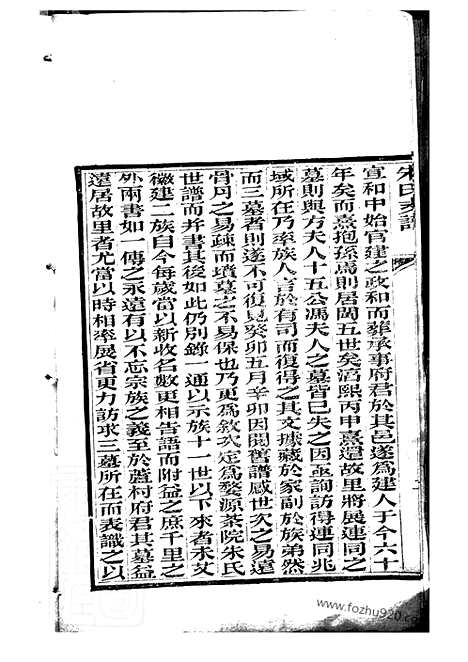 朱氏家譜
宣和中始官建之政和而葬承事府君於其邑遂爲建人于今六十
年矣而熹抱孫焉則居閩五世矣淳熙丙申熹還故里將展連同之
墓則與方夫人十五公馮夫人之墓皆已失之因亟詢訪得連同兆
域所在乃率族人言於有司而復得之其文據藏於家副於族弟然
而三墓者則遂不可復見癸卯五月辛卯因閱舊譜感世次之易遠
骨肉之易疎而墳墓之不易保也乃更爲敘次定爲婺源茶院朱氏
世譜而并書其後如此仍別錄一通以示族十一世以下來者未艾
徽建二族自今每歲當以新收名數更相告語而附益之庶千里之
外兩書如一傳之永遠有以不忘宗族之義至於蘆村府君其墓益
遠居故里者尤當以時相率展省更力訪求三墓所在而表識之以
www.fozhu920.com